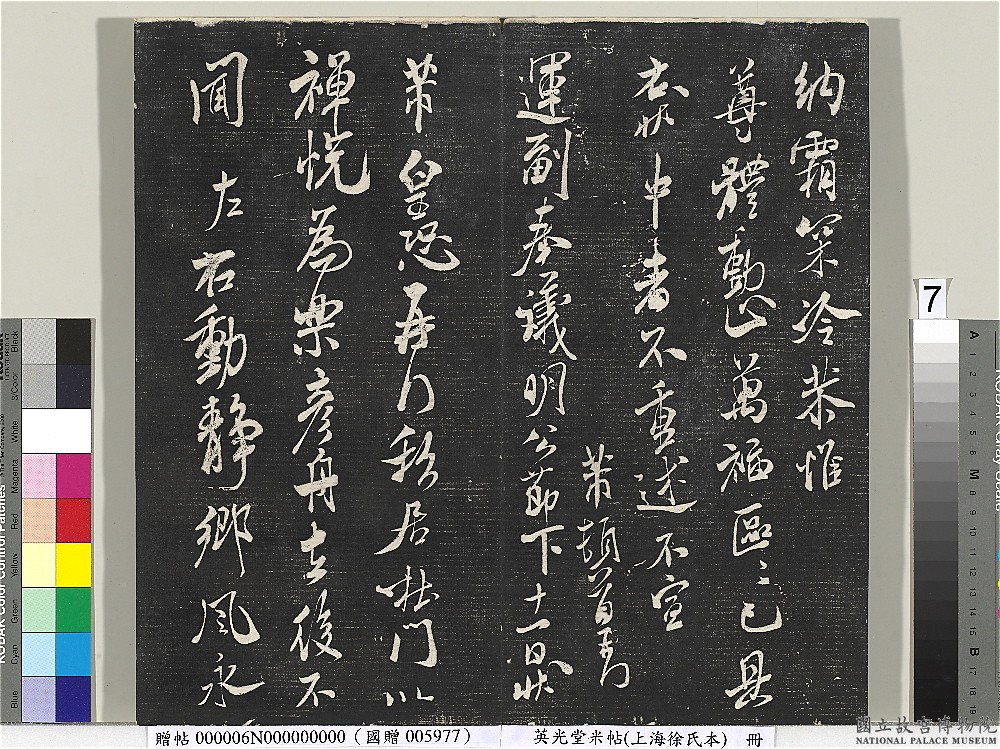 納霜深冷恭惟
尊體動止萬福區區已具
衣狀中者不重述不宣
芾頓首再
運副奉議明公節下十一日狀
芾皇恐再行務居杜門以
禪悅為樂彥舟去後不
聞左右動靜鄉風永
7
國立故宮博物院
NATIONAL PALACE MUSEUM
贈帖 000006N000000000 (國贈 005977)
英光堂米帖(上海徐氏本) 冊
Black
3/Color
White
Magenta
Red
Yellow
Green
Cyan
Blue
A 1 2 3 4 5 6 M 8 9 10 11 12 13 14 15 B 17 18 19